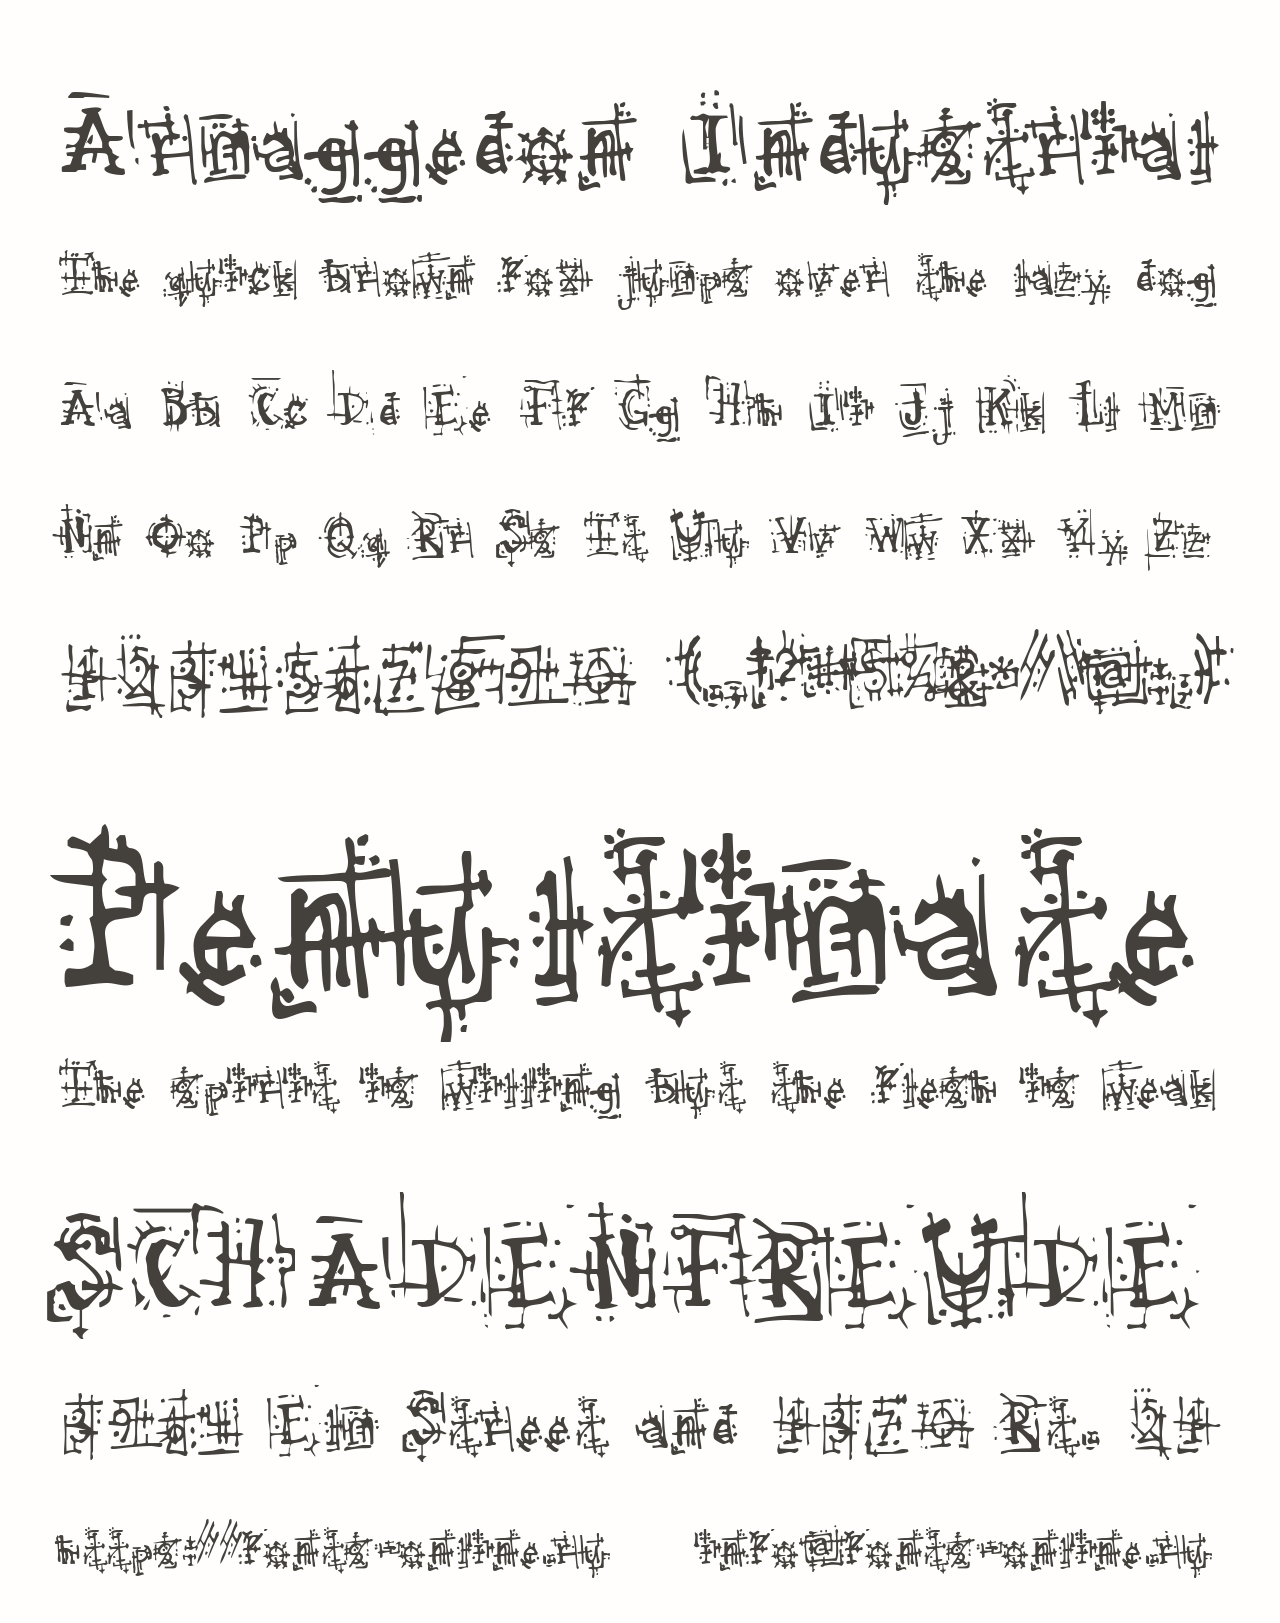 Armaggedon Industrial
The quick brown fox jumps over the lazy dog
Aa Bb Cc Dd Ee Ff Gg Hh Ii Jj Kk Ll Mm
Nn Oo Pp Qq Rr Ss Tt Uu Vv Ww Xx Yy Zz
1234567890 (.,!?#$%&*/\@:;)
Penultimate
The spirit is willing but the flesh is weak
SCHADENFREUDE
3964 Elm Street and 1370 Rt. 21
https://fonts-online.ru info@fonts-online.ru